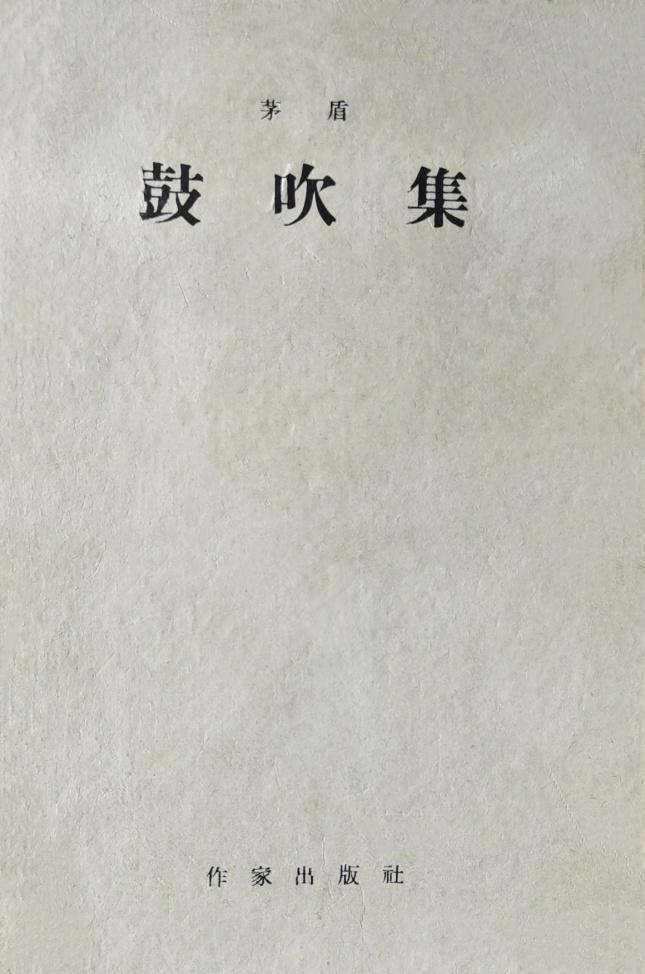 茅盾
鼓吹集
作家出版社